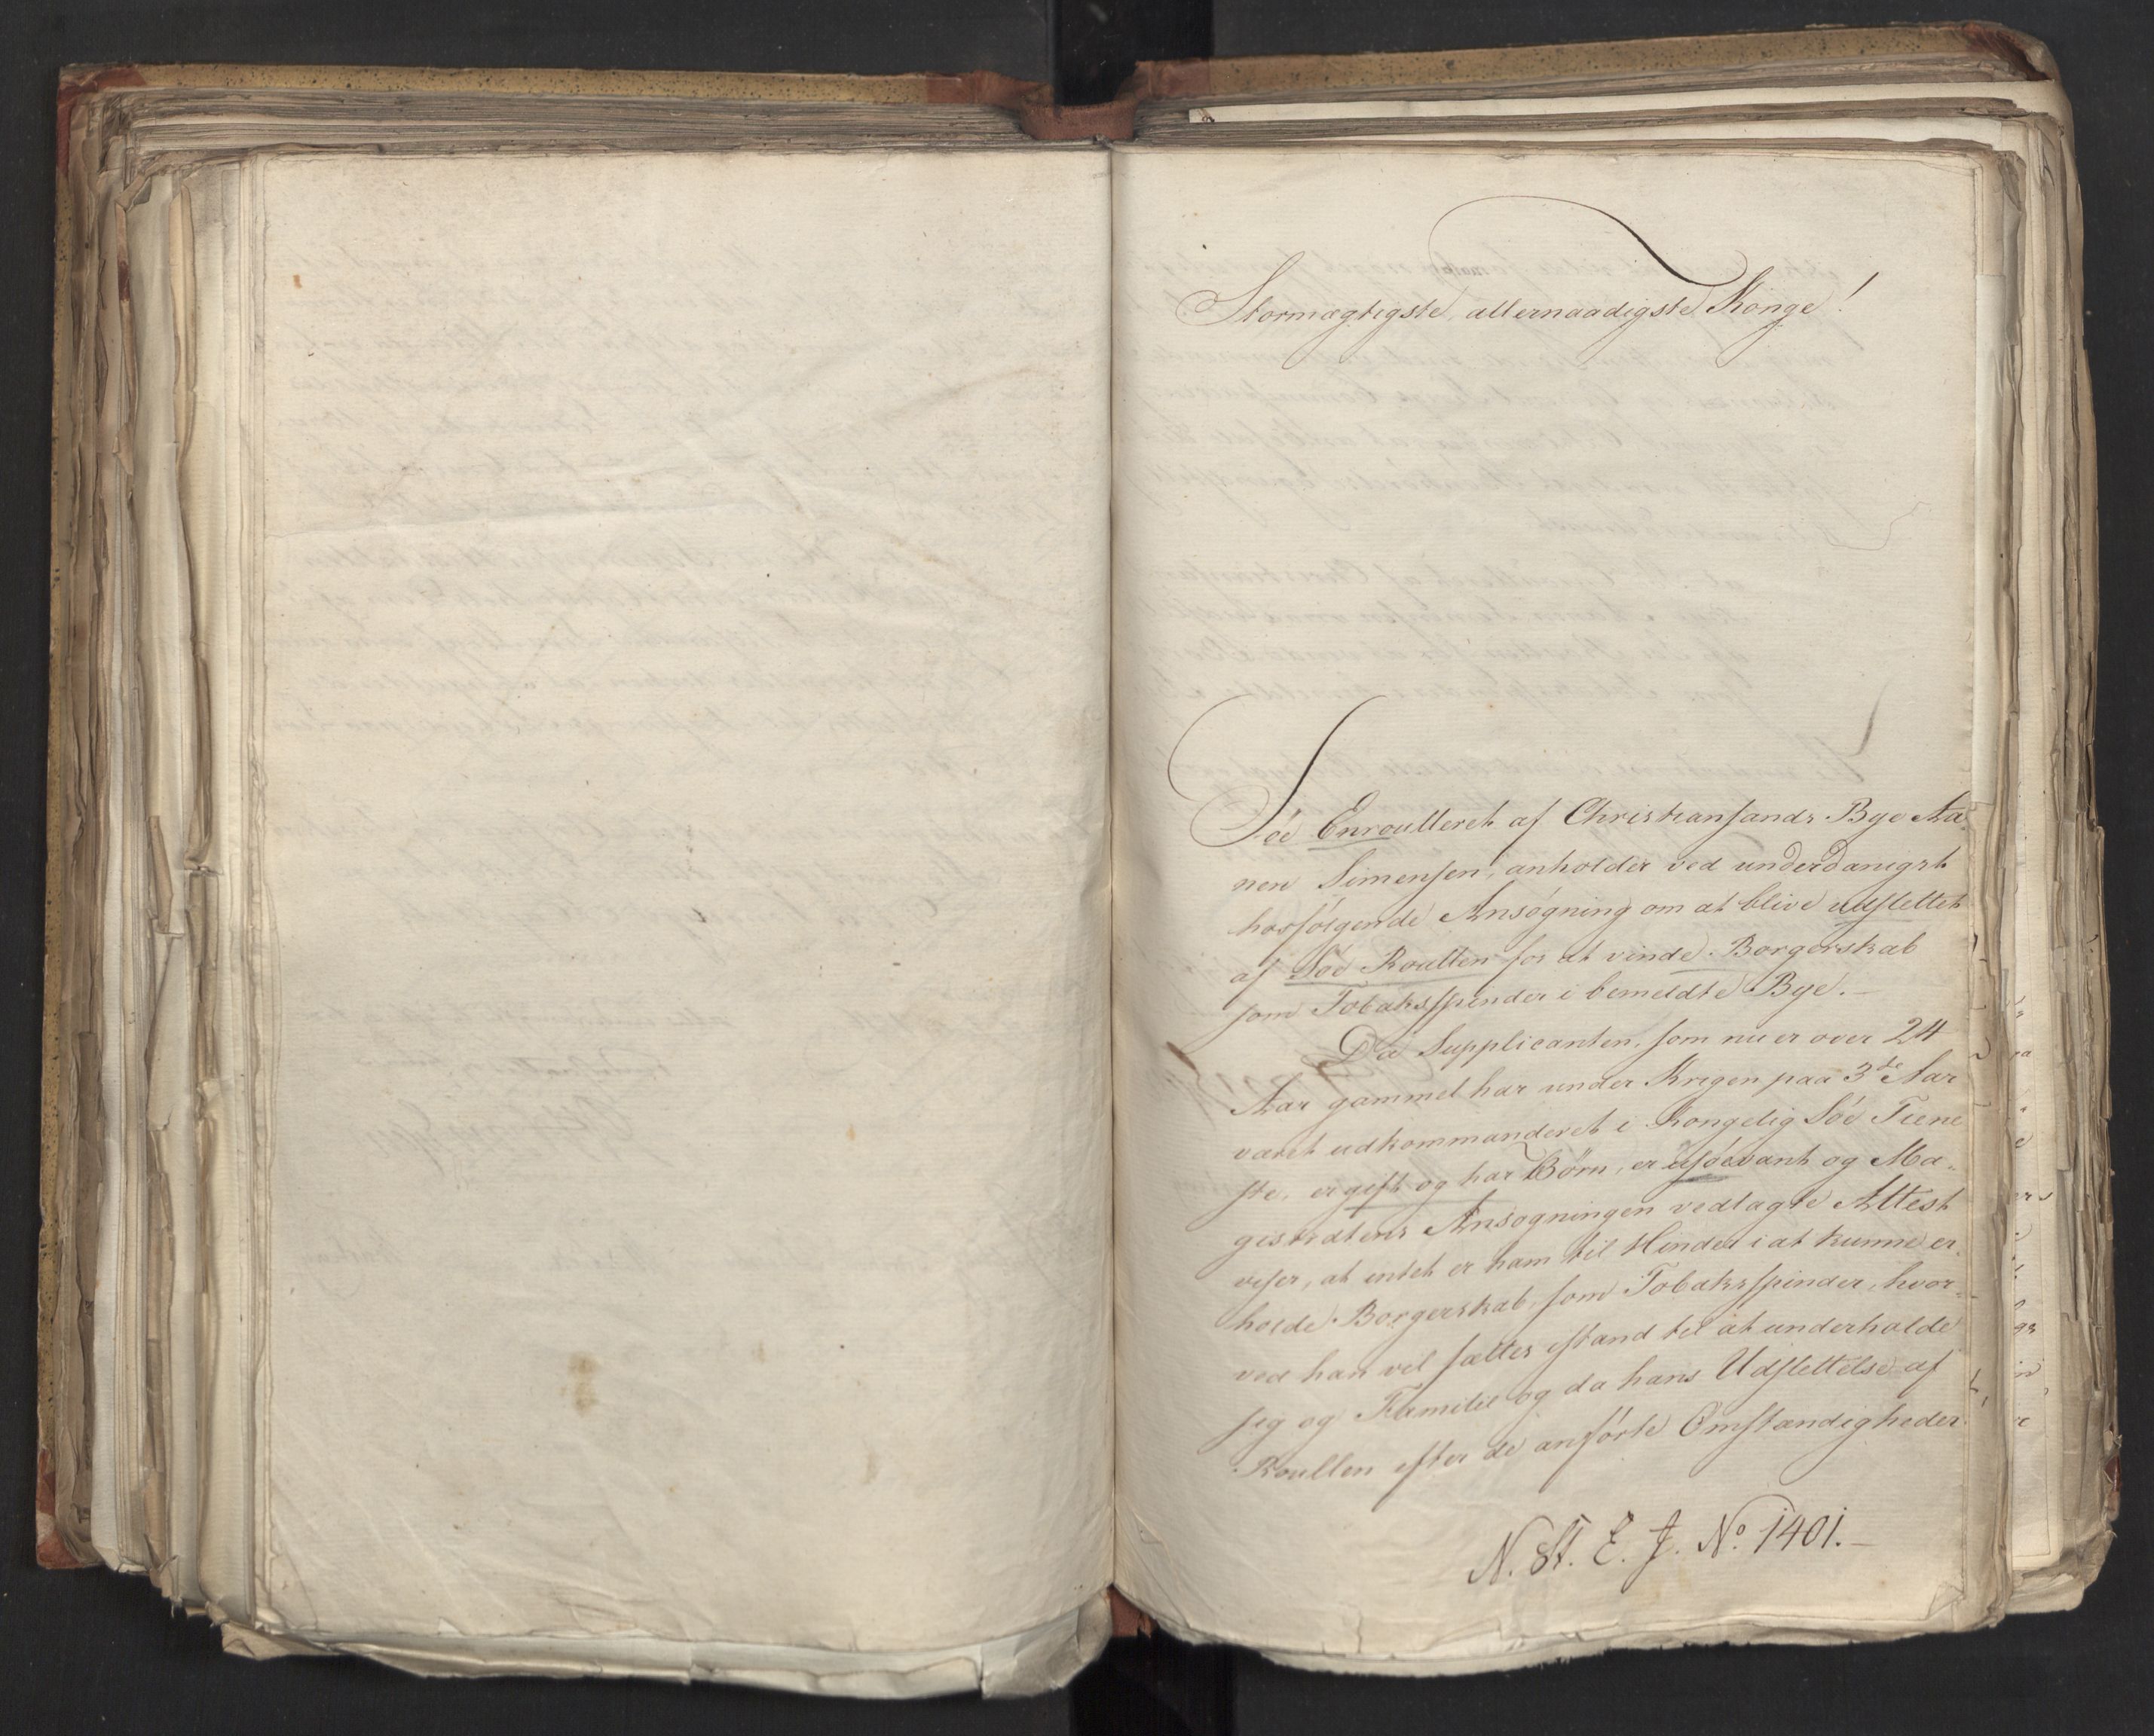 Stormægtigste, allernaadigste Konge!
Söe Enroulleret af Christiansands Bye Aa-
nen Simensen, anholder ved underdanigst
hosfölgende Ansøgning om at blive udslettet
af Söe Roullen for at vinde Borgerskab
som Tobaksspinder i bemeldte Bye.-
Da Supplicanten, som nu er over 24
Aar gammel har under Krigen paa 3de Aar
været udkommanderet i Kongelig Söe Tiene
ste, er gift og har Börn, er usöevant og Ma-
gistratens Ansøgningen vedlagte Attest
viser, at intet er ham til Hinder i at kunne er-
holde Borgerskab som Tobaksspinder, hvor-
ved han vil sættes istand til at underholde
sig og Familie og da hans Udslettelse af
Roullen efter de anförte Omstændigheder
N. St. E. J. No. 1401.-